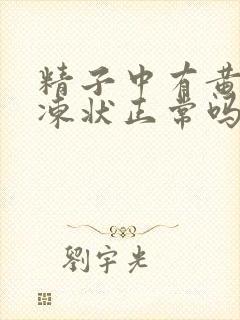 精子中有黄
冻状正常吗
劉宇光